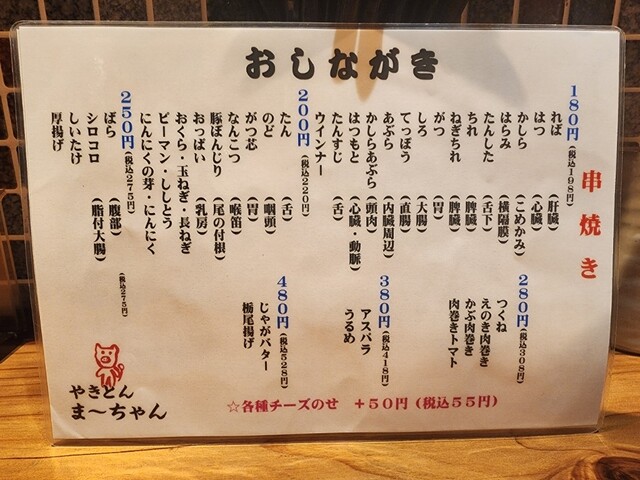 おしながき
串焼き
180円（税込198円）
れば（肝臓）
はつ（心臓）
かしら（こめかみ）
はらみ（横隔膜）
たんした（舌下）
ちれ（脾臓）
ねぎちれ（脾臓）
がつ（胃）
しろ（大腸）
てっぽう（直腸）
あぶら（内臓周辺）
かしらあぶら（頭肉）
はつもと（心臓・動脈）
たんすじ（舌）
ウインナー
200円（税込220円）
たん（舌）
のど（咽頭）
がつ芯（胃）
なんこつ（喉笛）
豚ぼんじり（尾の付根）
おっぱい（乳房）
おくら・玉ねぎ・長ねぎ
ピーマン・ししとう
にんにくの芽・にんにく（税込275円）
250円（税込275円）
ばら（腹部）
シロコロ（脂付大腸）
しいたけ
厚揚げ
280円（税込308円）
つくね
えのき肉巻き
かぶ肉巻き
肉巻きトマト
380円（税込418円）
アスパラ
うるめ
480円（税込528円）
じゃがバター
栃尾揚げ
☆各種チーズのせ　＋50円（税込55円）
やきとん
ま～ちゃん